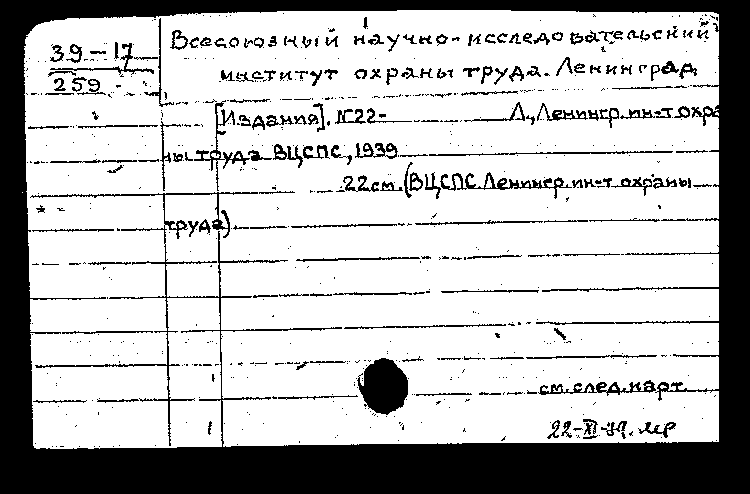 39-17
259
Всесоюзный научно-исследовательский
институт охраны труда. Ленинград.
[Издания]. №22- Л., Ленингр. ин-т охра
ны труда ВЦСПС, 1939
22 см. (ВЦСПС. Ленингр. ин-т охраны
труда).
см. след. карт.
22-XI-